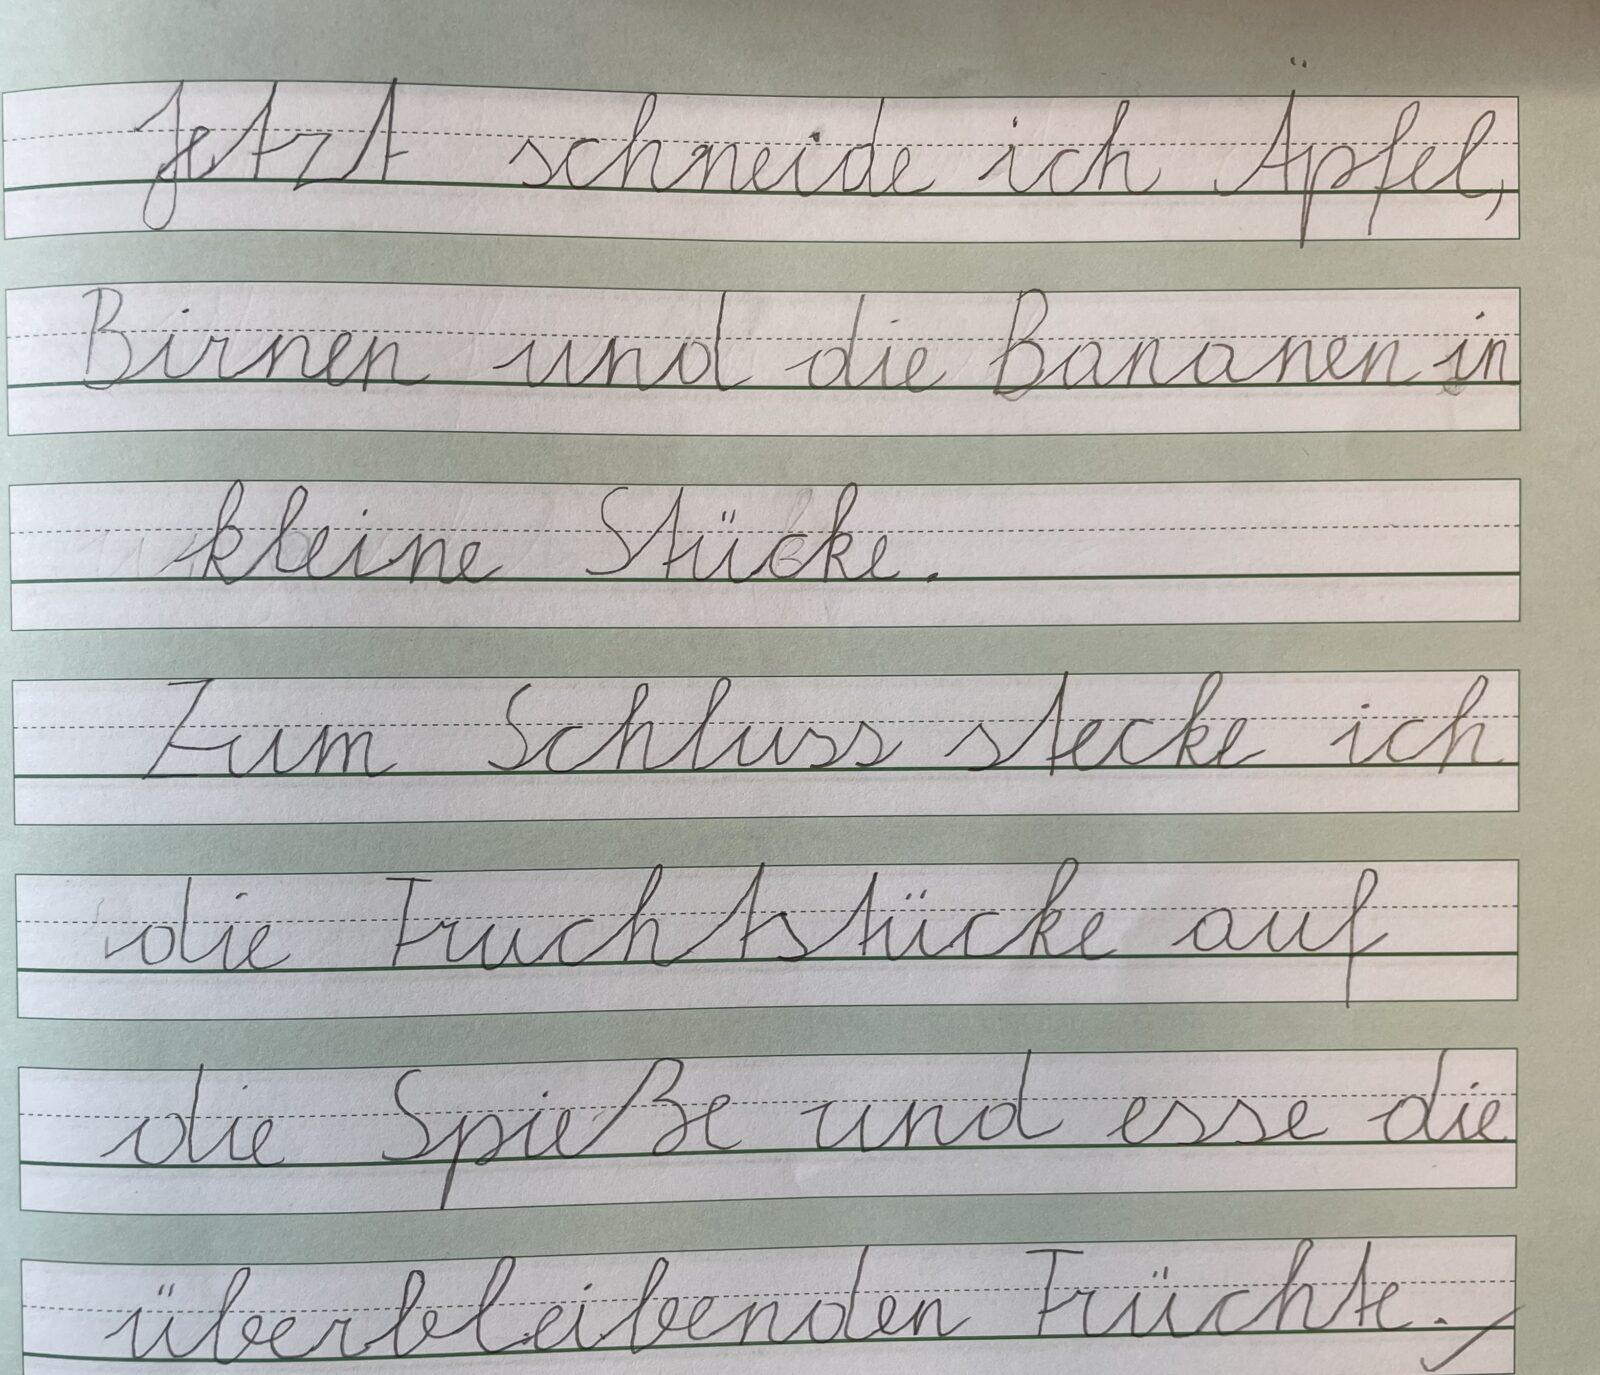 Jetzt schneide ich Äpfel,
Birnen und die Bananen in
kleine Stücke.
Zum Schluss stecke ich
die Fruchtstücke auf
die Spieße und esse die
überbleibenden Früchte.